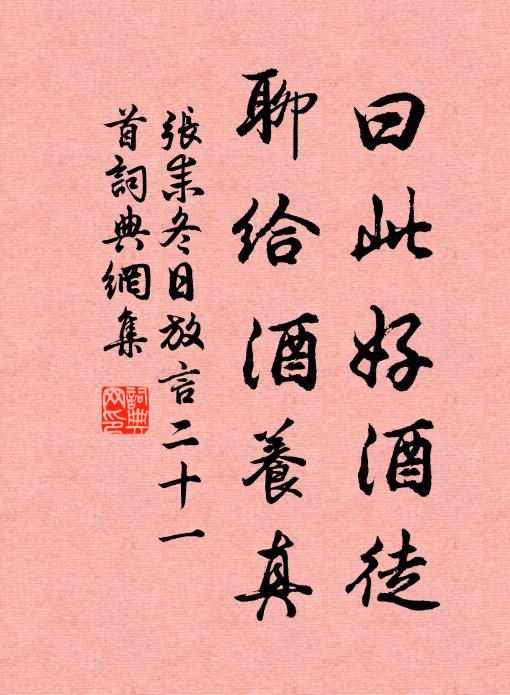 曰此好酒徒
聊给酒養真
張耒冬日放言二十一
首詞典網集
詞典
网印